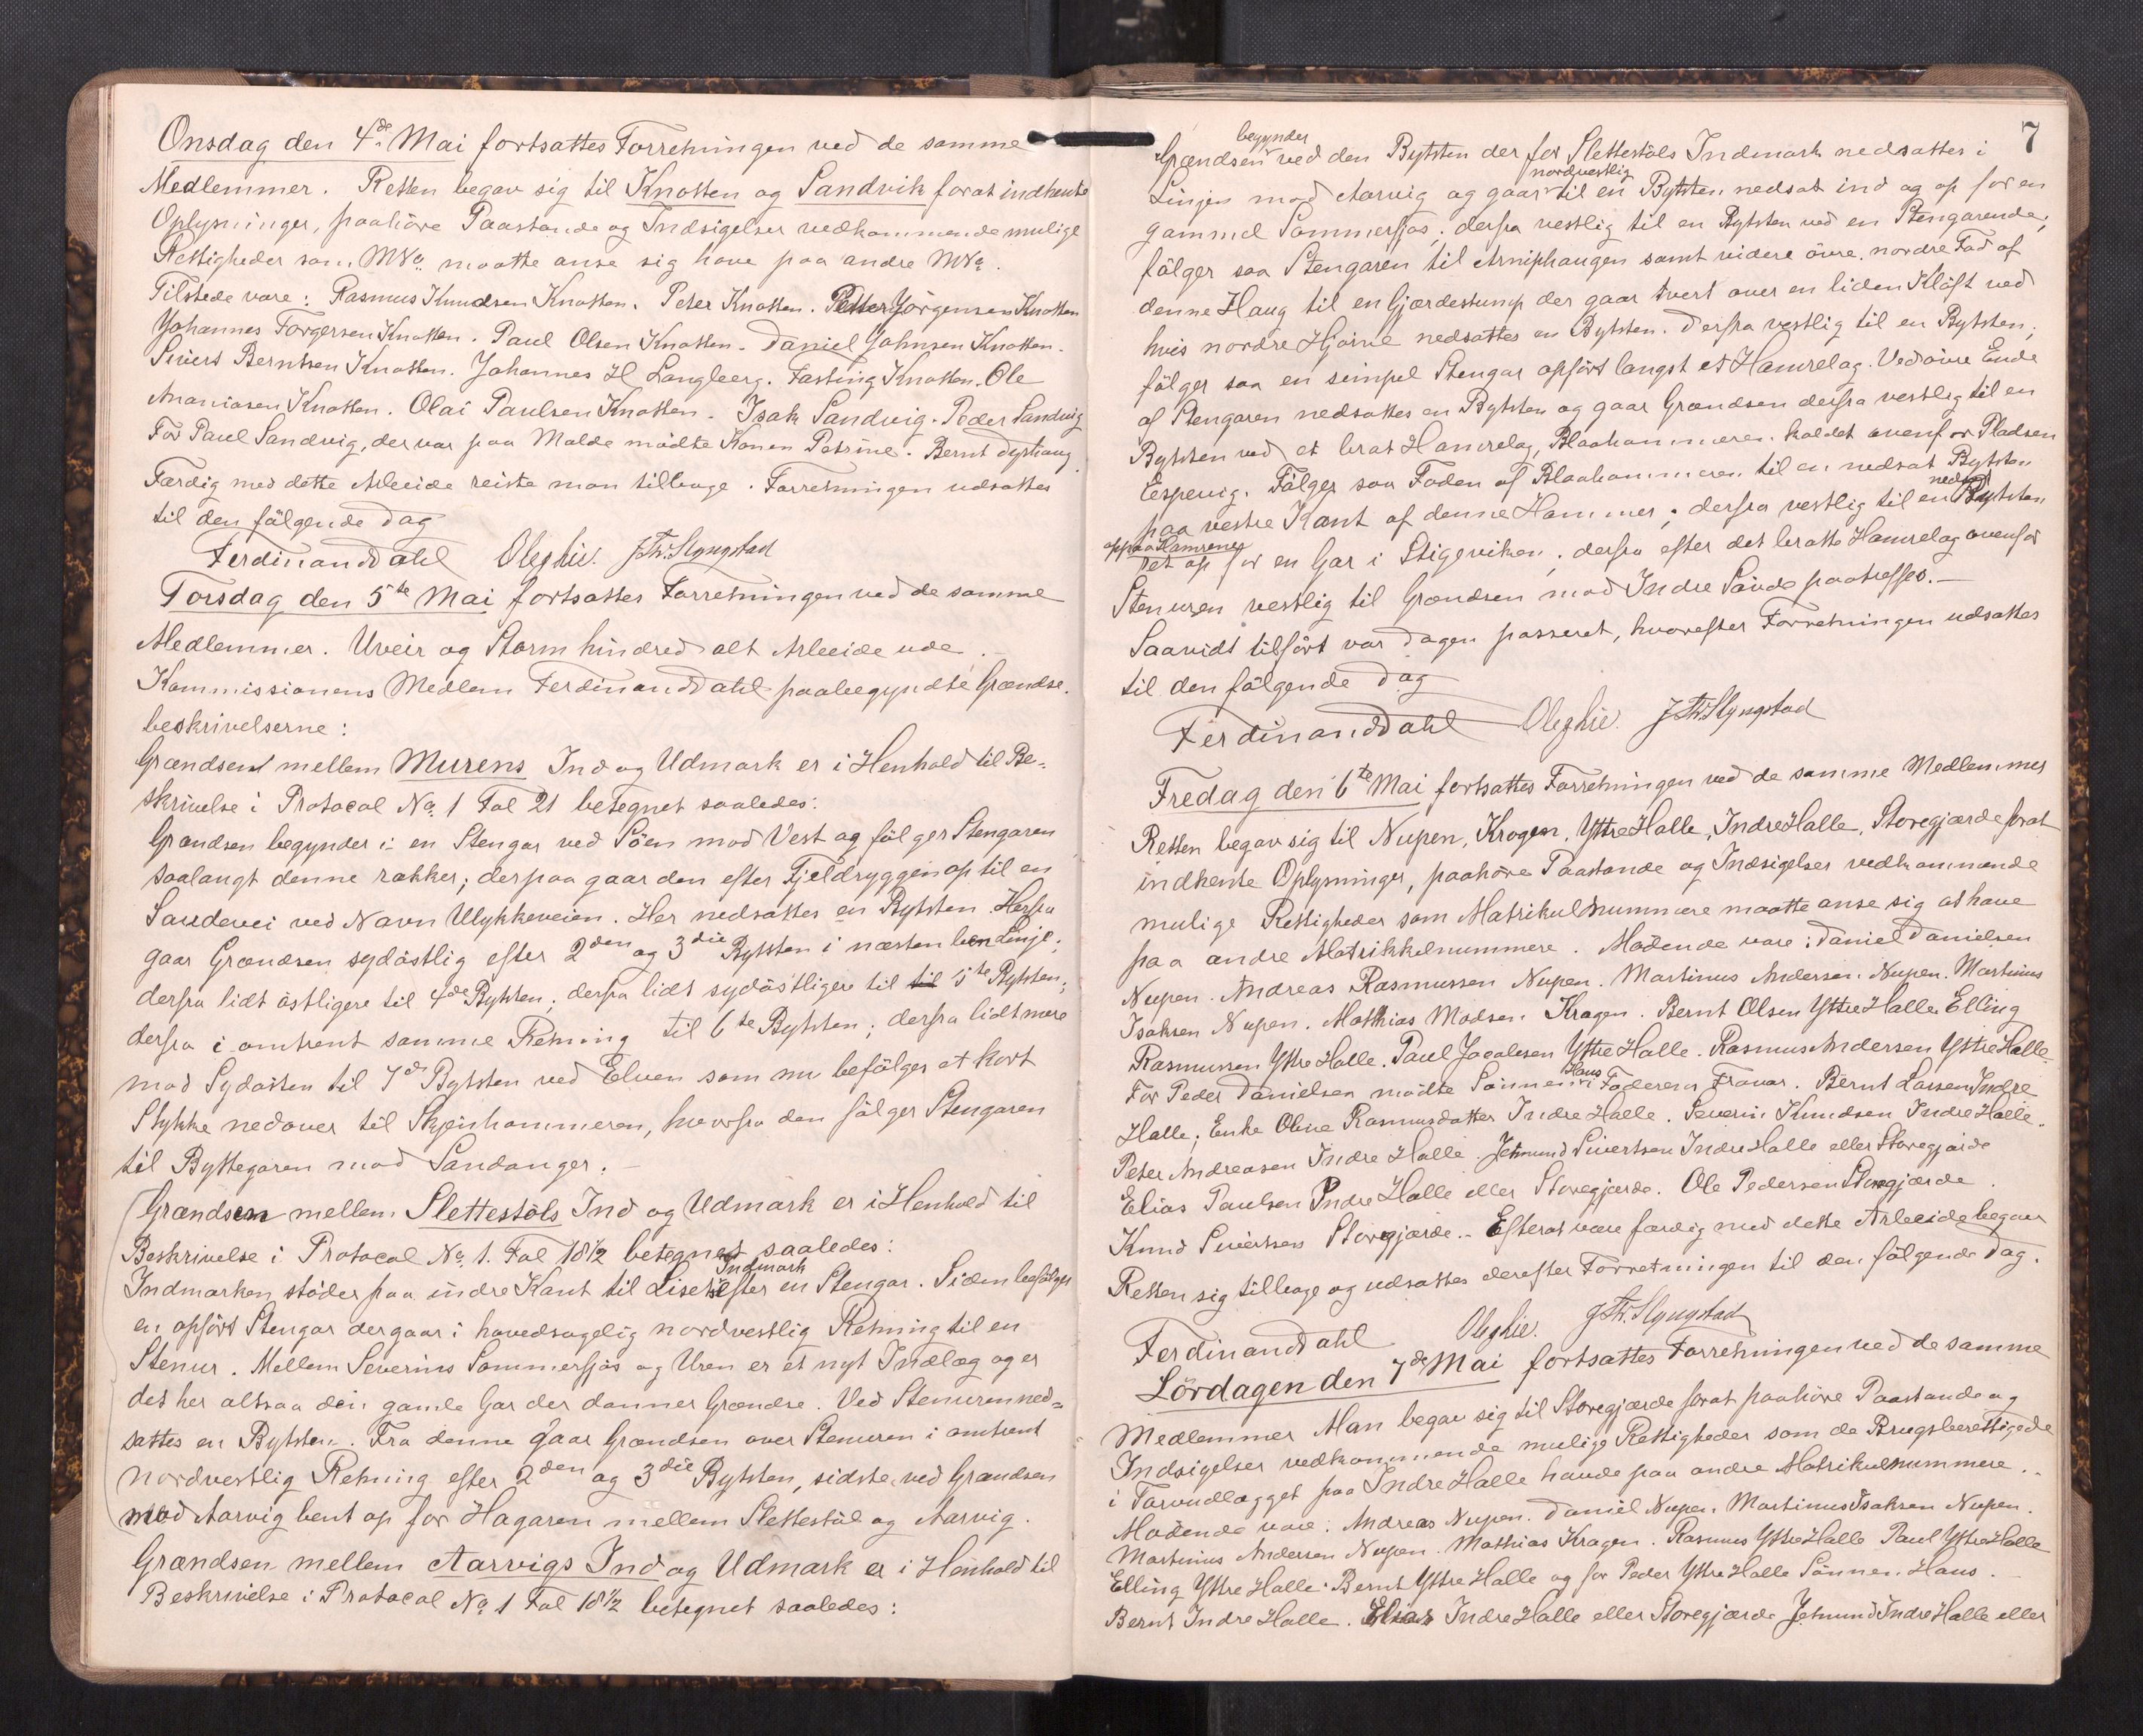 Onsdag den 4de Mai fortsattes Forretningen ved de samme
Medlemmer. Retten begav sig til Knotten og Sandvik forat indhente
Oplysninger, paahöre Paastande og Indsigelser vedkommende mulige
Rettigheder som MNo. maatte anse sig have paa andre MNo.
Tilstede vare: Rasmus Knudsen Knotten. Peter Knotten. Petter Jörgensen Knotten
Johannes Torgersen Knotten. Paul Olsen Knotten. Daniel Johnsen Knotten.
Sivert Berntsen Knotten. Johannes H Langberg. Fasting Knotten. Ole
Ananiasen Knotten. Olai Paulsen Knotten. Isak Sandvig. Peder Sandvig
For Paul Sandvig, der var paa Molde mödte Konen Petrine. Bernt Dyrhaug.
Færdig med dette Arbeide reiste man tilbage. Forretningen udsattes
til den fölgende Dag
Ferdinand Dahl Ole Ghie. J Th. Slyngstad
Torsdag den 5te Mai fortsattes Forretningen ved de samme
Medlemmer. Uveir og Storm hindred alt Arbeide ude.
Kommissionens Medlem Ferdinand Dahl paabegyndte Grændse-
beskrivelserne:
Grændsen mellem Murens Ind og Udmark er i Henhold til Be-
skrivelse i Protocol No. 1 Fol 21 betegnet saaledes:
Grændsen begynder i en Stengar ved Söen mod Vest og fölger Stengaren
saalangt denne rækker; derpaa gaar den efter Fjeldryggen op til en
Saudevei ved Navn Ulykkeveien. Her nedsattes en Bytsten. Herfra
gaar Grændsen sydöstlig efter 2den og 3die Bytsten i næsten ben Linje;
derfra lidt östligere til 4de Bytsten; derfra lidt sydöstligere til til 5te Bytsten;
derfra i omtrent samme Retning til 6te Bytsten; derfra lidt mere
mod Sydösten til 7de Bytsten ved Elven som nu befölges et kort
Stykke nedover til Skjenhammeren, hvorfra den fölger Stengaren
til Byttegaren mod Sandanger.
Grændsen mellem Slettestöls Ind og Udmark er i Henhold til
Beskrivelse i Protocol No. 1. Fol 18½ betegnet saaledes:
Indmark
Indmarken stöder paa indre Kant til Liset efter en Stengar. Siden befölges
en opfört Stengar der gaar i hovedsagelig nordvestlig Retning til en
Stenur. Mellem Severins Sommerfjös og Uren er et nyt Indlæg og er
det her altsaa den gamle Gar der danner Grændse. Ved Stenuren ned-
sattes en Bytsten. Fra denne gaar Grændsen over Stenuren i omtrent
nordvestlig Retning efter 2den og 3die Bytsten, sidste ved Grændsen
mod Aarvig bent op for Hagaren mellem Slettestöl og Aarvig.
Grændsen mellem Aarvigs Ind og Udmark er i Henhold til
Beskrivelse i Protocol No. 1 Fol 18½ betegnet saaledes:
7
begynder
Grændsen ved den Bytsten der for Slettestöls Indmark nedsattes i
nordvestlig
Linjen mod Aarvig og gaar til en Bytsten nedsat ind og op for en
gammel Sommerfjös; derfra vestlig til en Bytsten ved en Stengarende;
fölger saa Stengaren til Arniphaugen samt videre övre, nordre Fod af
denne Haug til en Gjærdestump der gaar tvert over en liden Klöft ved
hvis nordre Hjörne nedsattes en Bytsten. Derfra vestlig til en Bytsten;
fölger saa en simpel Stengar opfört langst et Hamrelag. Ved övre Ende
af Stengaren nedsattes en Bytsten og gaar Grændsen derfra vestlig til en
Bytsten ved et brat Hamrelag, Blaahammeren kaldet ovenfor Pladsen
Espevig. Fölger saa Foden af Blaahammeren til en nedsat Bytsten
nedsat
paa vestre Kant af denne Hammer; derfra vestlig til en Bytsten
oppaa Hamrene
ret op for en Gar i Stigeviken; derfra efter det bratte Hamrelag ovenfor
Stenuren vestlig til Grændsen mod Indre Sande paatreffes.—
Saavidt tilfört var Dagen passeret, hvorefter Forretningen udsattes
til den fölgende Dag
Ferdinand Dahl Ole Ghie. J Th. Slyngstad
Fredag den 6te Mai fortsattes Forretningen ved de samme Medlemmer
Retten begav sig til Nupen, Krogen, Yttre Halle, Indre Halle, Storegjærde forat
indhente Oplysninger, paahöre Paastande og Indsigelser vedkommende
mulige Rettigheder som Matrikulnummere maatte anse sig at have
paa andre Matrikkelnummere. Mödende vare: Daniel Danielsen
Nupen. Andreas Rasmussen Nupen. Martinus Andersen Nupen. Martinus
Isaksen Nupen. Mathias Madsen Kragen. Bernt Olsen Yttre Halle Elling
Rasmussen Yttre Halle. Paul Jacobsen Yttre Halle. Rasmus Andersen Yttre Halle.
Hans
For Peder Danielsen mödte Sönnen i Faderens Fravær. Bernt Larsen Indre
Halle; Enke Oline Rasmusdatter Indre Halle. Severin Knudsen Indre Halle.
Peter Andreasen Indre Halle. Jetmund Sivertsen Indre Halle eller Storegjærde
Elias Paulsen Indre Halle eller Storegjærde. Ole Pedersen Storegjærde.
Knud Sivertsen Storegjærde. Efterat være færdig med dette Arbeide begav
Retten sig tilbage og udsattes derefter Forretningen til den fölgende Dag.
Ferdinand Dahl Ole Ghie. J Th. Slyngstad
Lördagen den 7de Mai fortsattes Forretningen ved de samme
Medlemmer Man begav sig til Storegjærde forat paahöre Paastande og
Indsigelser vedkommende mulige Rettigheder som de Brugsberettigede
i Torvudlægget paa Indre Halle havde paa andre Matrikulnummere.
Mödende vare: Andreas Nupen. Daniel Nupen. Martinus Isaksen Nupen.
Martinus Andersen Nupen. Mathias Kragen. Rasmus Yttre Halle Paul Yttre Halle
Elling Yttre Halle. Bernt Yttre Halle og for Peder Yttre Halle Sönnen Hans.
Bernt Indre Halle. Elias Indre Halle eller Storegjærde Jetmund Indre Halle eller